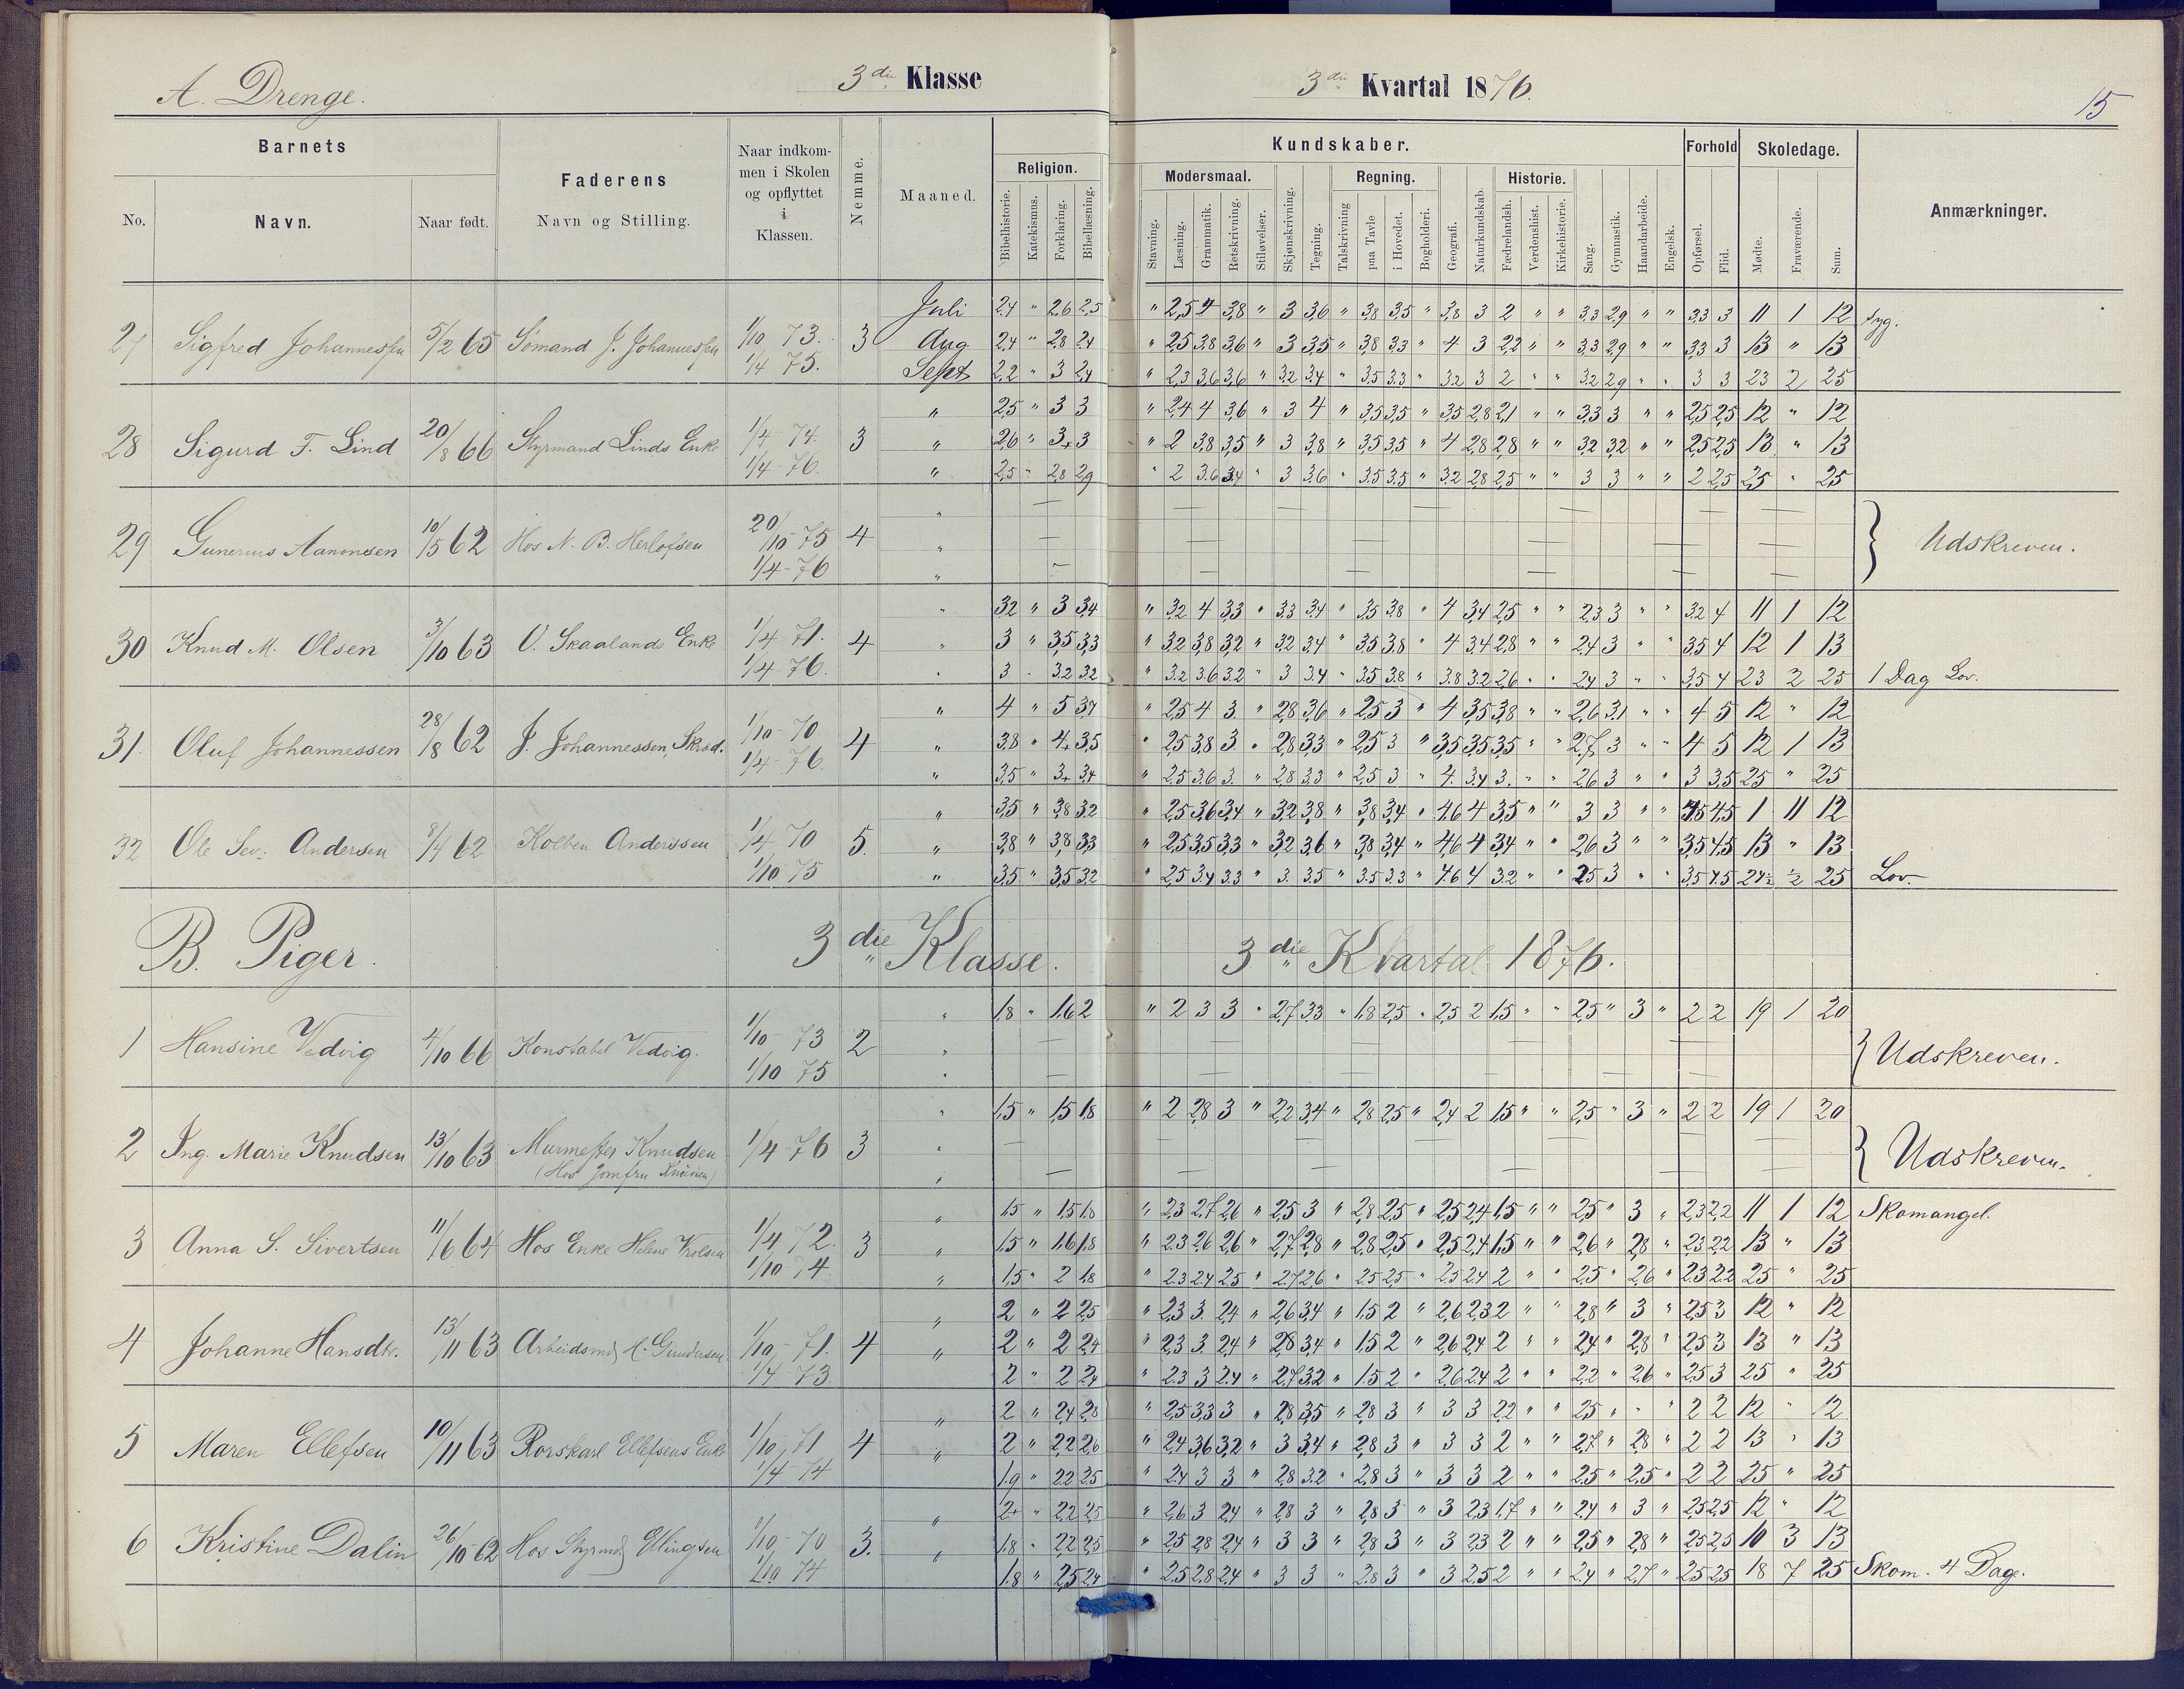 A. Drenge.
3die Klasse
3die Kvartal 1876.
15
Barnets
No.
Navn.
Naar født.
Faderens
Navn og Stilling.
Naar indkom-
men i Skolen
og opflyttet
i
Klassen.
Nemme.
Maaned.
Religion.
Bibelhistorie.
Katekismus.
Forklaring.
Bibellæsning.
Kundskaber.
Modersmaal.
Stavning.
Læsning.
Grammatik.
Retskrivning.
Stiløvelser.
Skjønskrivning.
Tegning.
Regning.
Talskrivning
paa Tavle
i Hovedet.
Bogholderi.
Geografi.
Naturkundskab.
Historie.
Fædrelandsh.
Verdenshist.
Kirkehistorie.
Sang.
Gymnastik.
Haandarbeide.
Engelsk.
Forhold
Opførsel.
Flid.
Skoledage.
Mødte.
Fraværende.
Sum.
Anmærkninger.
27 Sigfred Johannessen 5/2 65 Sømand J. Johannessen 1/10 73. 1/4 75. 3
Juli 2,4 " 2,6 2,5 " 2,5 4 3,8 " 3 3,6 " 3,8 3,5 " 3,8 3 2 " " 3,3 2,9 " " 3,3 3 11 1 12 Syg.
Aug 2,4 " 2,8 2,4 " 2,5 3,8 3,6 " 3 3,5 " 3,8 3,3 " 4 3 2,2 " " 3,3 2,9 " " 3,3 3 13 " 13
Sept 2,2 " 3 2,4 " 2,3 3,6 3,6 " 3,2 3,4 " 3,5 3,3 " 3,2 3 2 " " 3,2 2,9 " " 3 3 23 2 25
28 Sigurd F. Lind 20/8 66 Styrmand Linds Enke 1/4 74. 1/4 76. 3
" 2,5 " 3 3 " 2,4 4 3,6 " 3 4 " 3,5 3,5 " 3,5 2,8 2,1 " " 3,3 3 " " 2,5 2,5 12 " 12
" 2,6 " 3+ 3 " 2 3,8 3,5 " 3 3,8 " 3,5 3,5 " 4 2,8 2,8 " " 3,2 3,2 " " 2,5 2,5 13 " 13
" 2,5 " 2,8 2,9 " 2 3,6 3,4 " 3 3,6 " 3,5 3,5 " 3,2 2,8 2,5 " " 3 3 " " 2 2,5 25 " 25
29 Gunerius Aanonsen 10/5 62 Hos N. B. Herlofsen 20/10 - 75 1/4 - 76 4
Udskreven.
30 Knud M. Olsen 3/10 63 O. Skaalands Enke 1/4 71. 1/4 76. 4
" 3,2 " 3 3,4 " 3,2 4 3,3 " 3,3 3,4 " 3,5 3,8 " 4 3,4 2,5 " " 2,3 3 " " 3,2 4 11 1 12
" 3 " 3,5 3,3 " 3,2 3,8 3,2 " 3,2 3,4 " 3,5 3,8 " 4 3,4 2,8 " " 2,4 3 " " 3,5 4 12 1 13
" 3 " 3,2 3,2 " 3,2 3,6 3,2 " 3 3,4 " 3,5 3,8 " 3,8 3,2 2,6 " " 2,4 3 " " 3,5 4 23 2 25 1 Dag Lov.
31. Oluf Johannessen 28/8 62 J. Johannessen, Skræd. 1/10 - 70 1/4 - 76. 4
" 4 " 5 3,7 " 2,5 4 3. " 2,8 3,6 " 2,5 3 " 4 3,5 3,8 " " 2,6 3,1 " " 4 5 12 " 12
" 3,8 " 4+ 3,5 " 2,5 3,8 3. " 2,8 3,3 " 2,5 3 " 3,5 3,5 3,5 " " 2,7 3 " " 4 5 12 1 13
" 3,5 " 3+ 3,4 " 2,5 3,6 3. " 2,8 3,3 " 2,5 3 " 4. 3,4 3. " " 2,6 3 " " 3 3,5 25 " 25
32 Ole Sev: Andersen 8/4 62 Kolben Anderssen 1/4 70 1/10 75 5.
" 3,5 " 3,8 3,2 " 2,5 3,6 3,4 " 3,2 3,8 " 3,8 3,4 " 4,6 4 3,5 " " 3 3 " " 4,5 4,5 1 11 12
" 3,8 " 3,8 3,3 " 2,5 3,5 3,3 " 3,2 3,6 " 3,8 3,4 " 4,6 4 3,4 " " 2,6 3 " " 3,5 4,5 13 " 13
" 3,5 " 3,5 3,2 " 2,5 3,4 3,3 " 3. 3,5 " 3,5 3,3 " 4,6 4 3,2 " " 2,5 3 " " 3,5 4,5 24½ ½ 25 Lov.
B. Piger. 3die Klasse. 3die Kvartal 1876.
1 Hansine Vedvig 4/10 66 Konstabel Vedvig. 1/10 - 73 1/10 75 2
" 1,8 " 1,6 2 " 2 3 3 " 2,7 3,3 " 1,8 2,5 " 2,5 2 1,5 " " 2,5 " 3 " 2 2 19 1 20
Udskreven.
2 Ing. Marie Knudsen 13/10 63 Murmester Knudsen (Hos Jomfru) 1/4 76 3
" 1,5 " 1,5 1,8 " 2 2,8 3 " 2,2 3,4 " 2,8 2,5 " 2,4 2 1,5 " " 2,5 " 3 " 2 2 19 1 20
Udskreven.
3 Anna S. Sivertsen 11/6 64 Hos Enke Helene 1/4 72. 1/10 74. 3
" 1,5 " 1,5 1,8 " 2,3 2,7 2,6 " 2,5 3 " 2,8 2,5 " 2,5 2,4 1,5 " " 2,5 " 3 " 2,3 2,2 11 1 12 Skomangel.
" 1,5 " 1,6 1,8 " 2,3 2,6 2,6 " 2,7 2,8 " 2,8 2,5 " 2,5 2,4 1,5 " " 2,6 " 2,8 " 2,3 2,2 13 " 13
" 1,5 " 2 1,8 " 2,3 2,4 2,5 " 2,7 2,6 " 2,5 2,5 " 2,5 2,4 2 " " 2,5 " 2,6 " 2,3 2,2 25 " 25
4 Johanne Hansdtr. 13/11 63 Arbeidsmd H. Gundersen 1/10 - 71. 1/4 73 4
" 2 " 2 2,5 " 2,3 3. 2,4 " 2,6 3,4 " 1,5 2 " 2,6 2,3 2 " " 2,8 " 3 " 2,5 3 12 " 12
" 2 " 2 2,4 " 2,3 3. 2,4 " 2,8 3,4 " 1,5 2 " 2,6 2,4 2 " " 2,4 " 2,8 " 2,5 3 13 " 13
2 " 2 2,4 " 2,3 3 2,4 " 2,7 3,2 " 1,5 2 " 2,6 2,4 2 " " 2,2 " 2,6 " 2,5 3 25 " 25
5 Maren Ellefsen 10/11 63 Rorskarl Ellefsens Enke 1/10 71 1/4 - 74 4
" 2 " 2,4 2,8 " 2,5 3,3 3 " 2,8 3,5 " 2,8 3 " 3 3 2,2 " " 2,5 " " " 2 2 12 " 12
" 2 " 2,2 2,6 " 2,4 3,6 3,2 " 3 3,4 " 2,8 3 " 3 3 2 " " 2,7 " 2,8 " 2 2 13 " 13
1,9 " 2,2 2,5 " 2,4 3 3 " 2,8 3,2 " 2,8 3 " 3 3 2 " " 2,5 " 2,5 " 2 2 25 " 25
6 Kristine Dalin 26/10 62 Hos Styrmd Ellingsen 1/10 - 70 1/10 74 3.
" 2+ " 2,2 2,5 " 2,6 3 2,4 " 2,8 3 " 2,8 3 " 3 2,3 1,7 " " 2,4 " 3 " 2,5 2,5 12 " 12
" 1,8 " 2,2 2,5 " 2,5 2,8 2,4 " 3 3 " 2,8 3 " 3 2,3 2 " " 2,5 " 2,8 " 2,5 2,5 10 3 13
1,8 " 2,5 2,4 " 2,5 2,8 2,4 " 3 3 " 2,8 3 " 3 2,5 2 " " 2,4 " 2,7 " 2,5 2,5 18 7 25 Skom. 4 Dage.